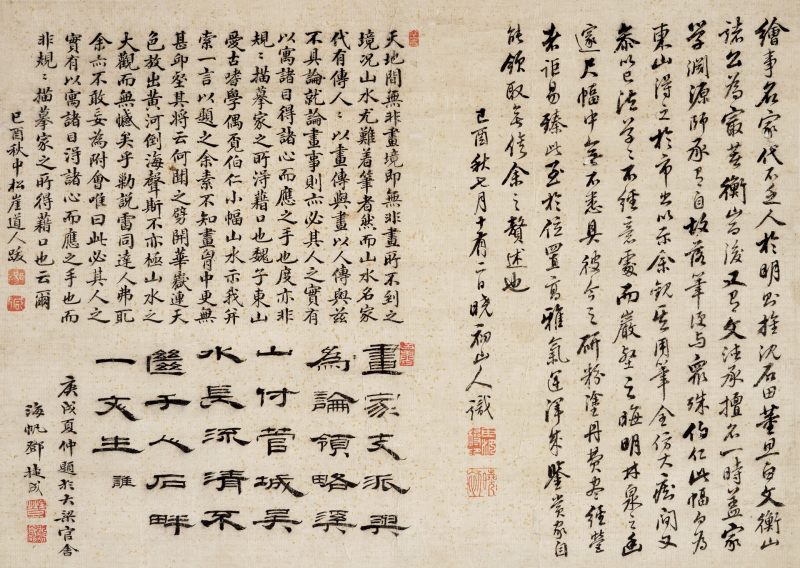 繪事名家代不乏人於明則推沈石田董思白文衡山
諸公為最著衡山後又有文法承擅名一時蓋家
学淵源師承有自故落筆便与衆殊伯仁此幅为
東山得之於市出以示余観其用筆全仿大癡間又
参以己法草草不經意處而巖壑之晦明林泉之幽
邃尺幅中無不悉具彼今之研粉塗丹費尽經營
者詎易臻此至於位置高雅氣運渾成鑒賞家自
能領取無俟余之贅述也
己酉秋七月十有二日曉初山人識
天地間無非畫境即無非畫所不到之
境况山水尤難着筆者然而山水名家
代有傳人人以畫傳與畫以人傳與茲
不具論就論畫事則亦必其人之實有
以寓諸目得諸心而應之手也度亦非
規規描摹家之所得藉口也魏子東山
愛古嗜學偶覓伯仁小幅山水示我并
索一言以題之余素不知畫胷中更無
甚邱壑其將云何開之劈開華嶽連天
色放出黄河倒海聲斯不亦極山水之
大觀而無憾矣乎勦說雷同達人弗取
余亦不敢妄為附會唯曰此必其人之
實有以寓諸目得諸心而應之手也而
非規規描摹家之所得藉口也云爾
己酉秋中松崖道人跋
畫家支派與
為論領略溪
山付管城吴
水長流清不
盡千人石畔
一文生
庚戌夏仲題於大梁官舍
海帆鄧